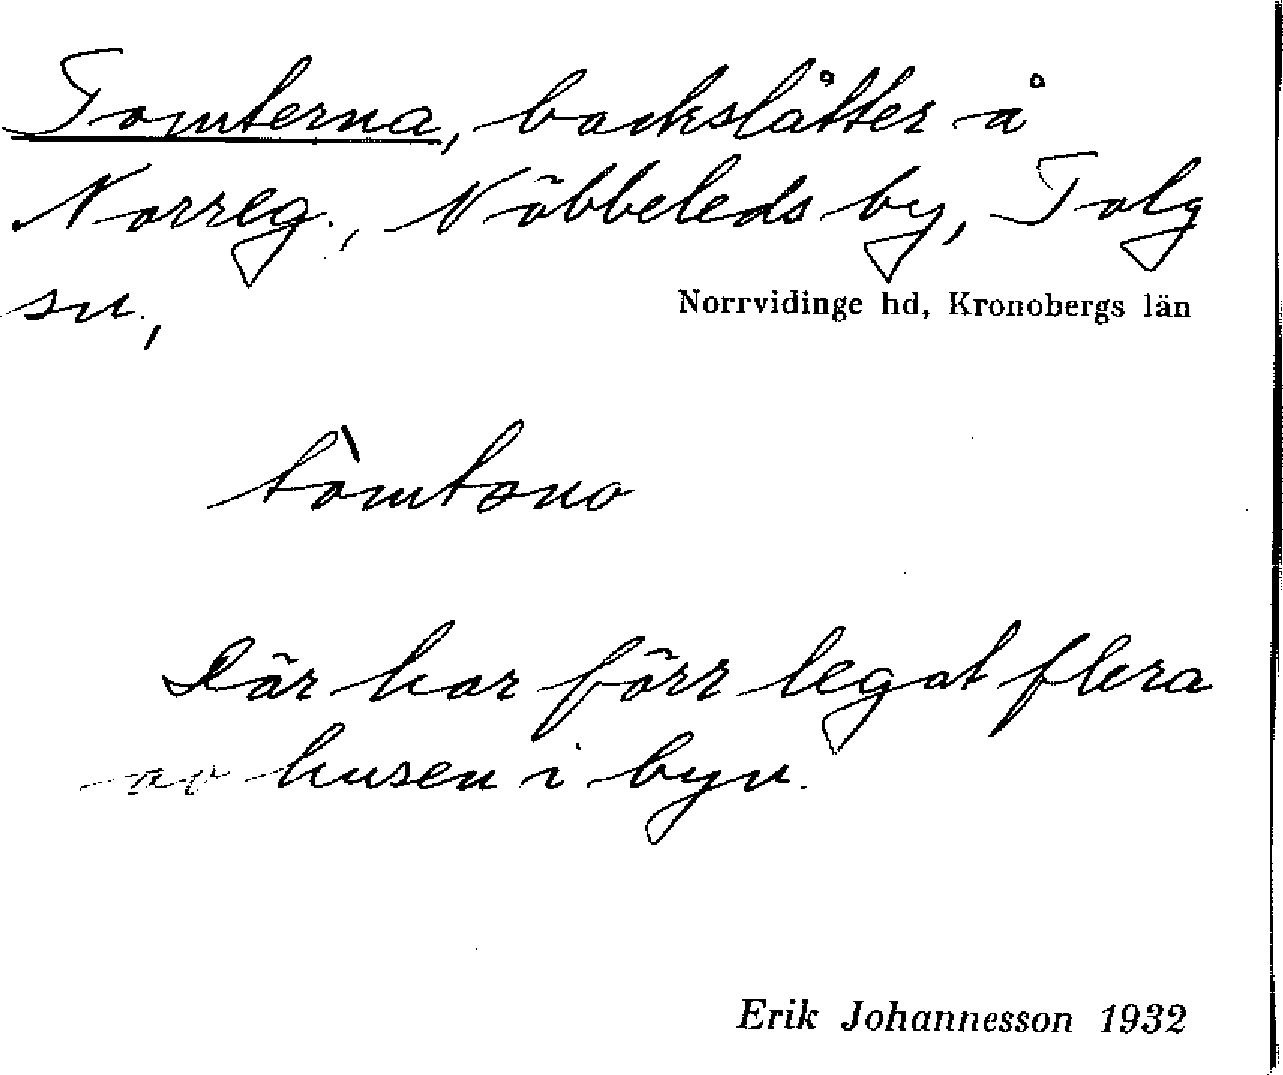 Tomterna, backslåtter å
Norreg., Nöbbeleds by, Tolg
sn.,
Norrvidinge hd, Kronobergs län
tòmtəna
Där har förr legat flera
av husen i byn.
Erik Johannesson 1932